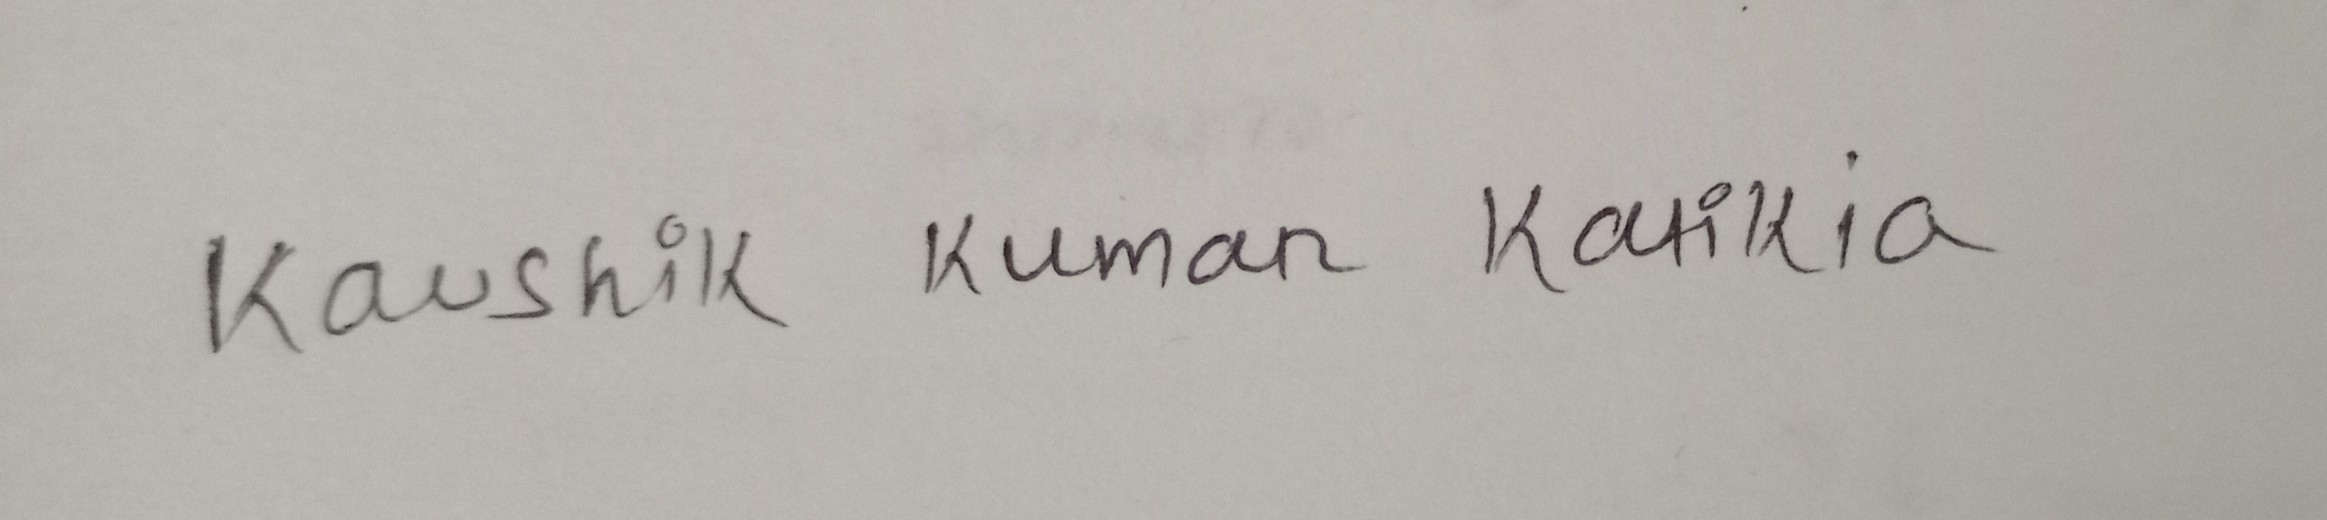 Kaushik Kumar Katikia